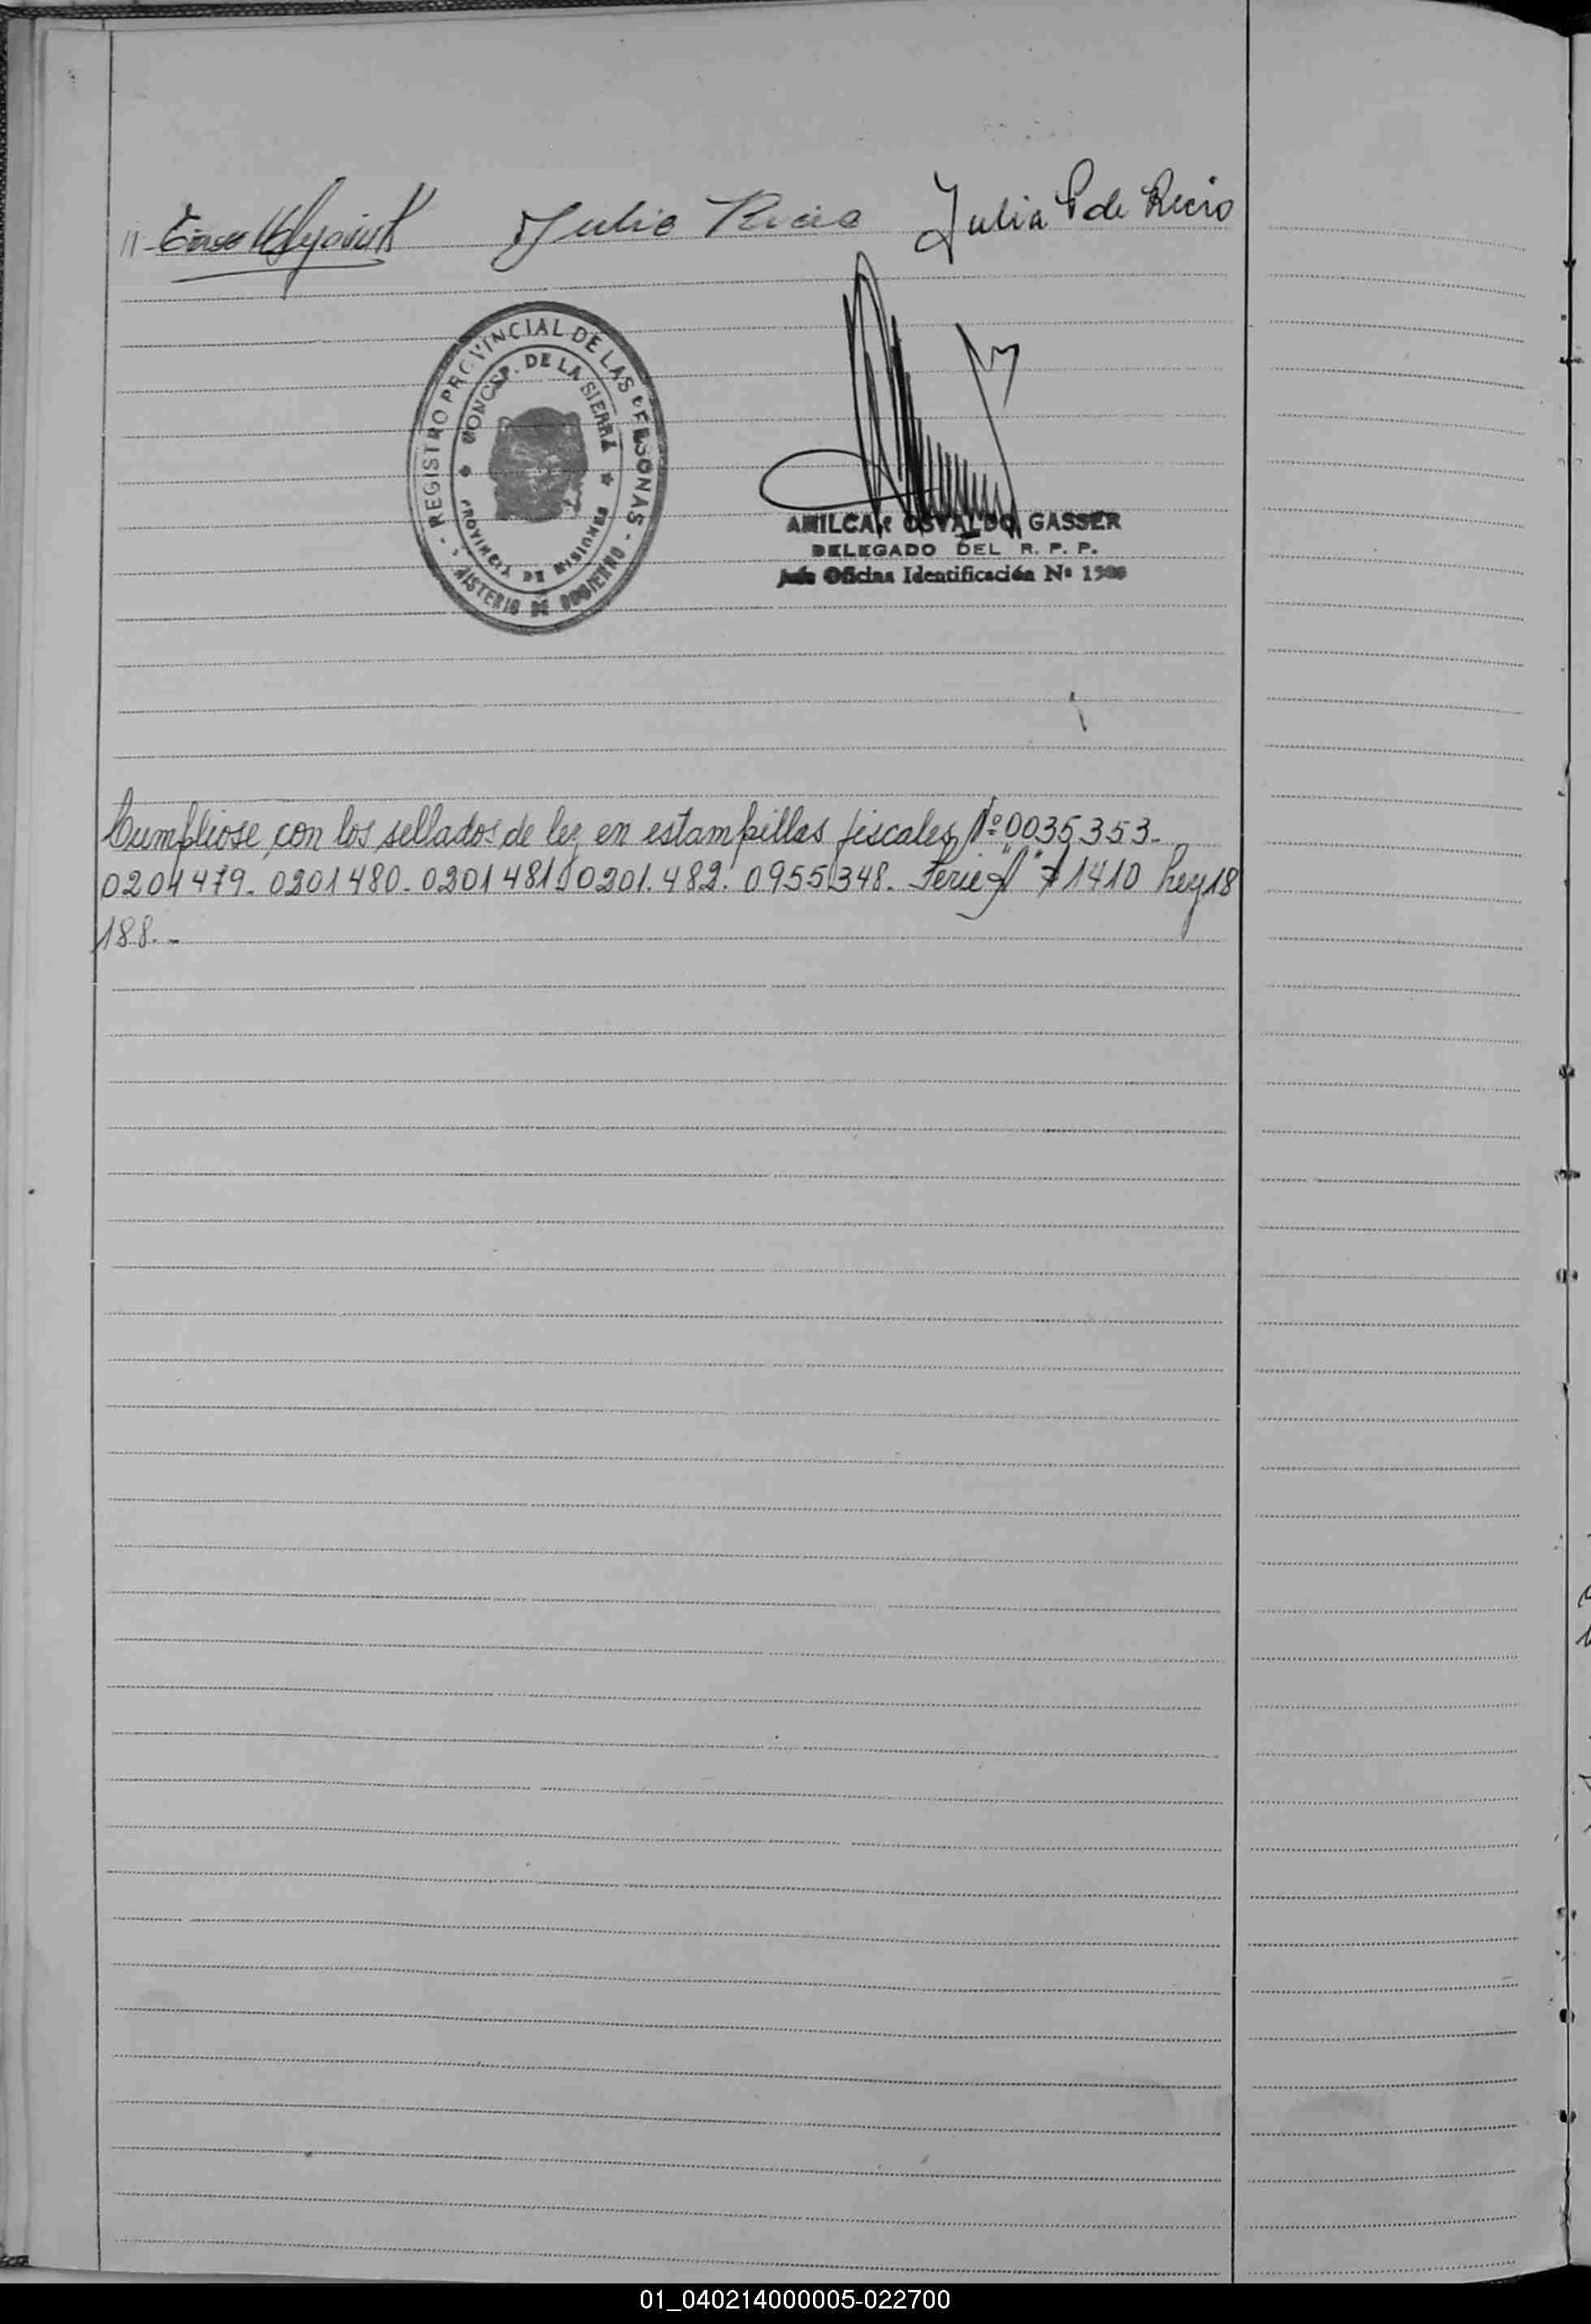 Julio Recio Julia P de Recio
- REGISTRO PROVINCIAL DE LAS PERSONAS -
CONCEP. DE LA SIERRA
PROVINCIA DE MISIONES
MISTERIO DE GOBIERNO
AMILCAR OSVALDO GASSER
DELEGADO DEL R. P. P.
Jefe Oficina Identificación Nº
Cumpliose con los sellados de ley en estampillas fiscales Nº 0035353-
0201479- 0201480- 0201481- 0201.482. 0955348. Serie "A" 1410 Ley 18
188.-
01_040214000005-022700